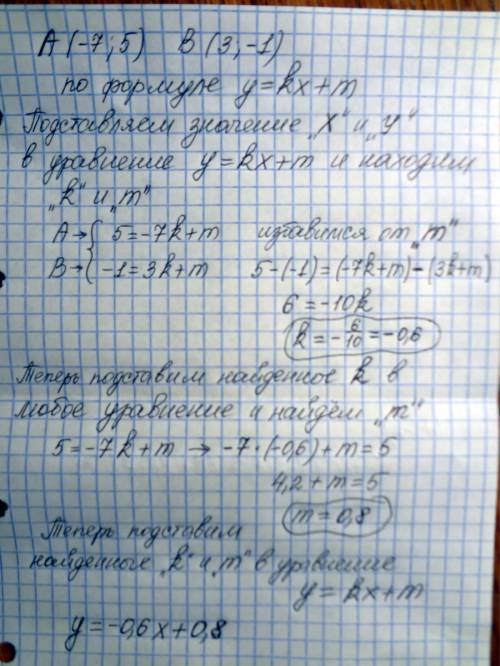 A (-7; 5) B (3; -1)
по формуле y = kx + m
Подставляем значение „x" и „y"
в уравнение y = kx + m и находим
„k" и „m"
A → { 5 = -7k + m избавимся от „m"
B → { -1 = 3k + m 5 - (-1) = (-7k + m) - (3k + m)
6 = -10k
k = -6/10 = -0,6
Теперь подставим найденное k в
любое уравнение и найдём „m"
5 = -7k + m → -7 · (-0,6) + m = 5
4,2 + m = 5
m = 0,8
Теперь подставим
найденные „k" и „m" в уравнение
y = kx + m
y = -0,6x + 0,8